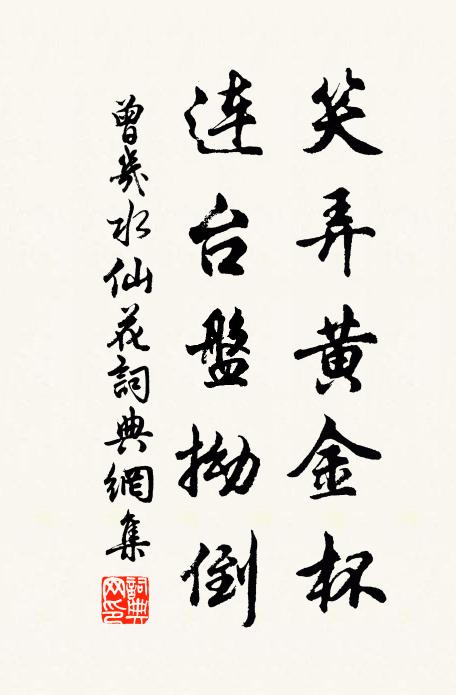 笑弄黄金杯
連台盤拗倒
曾幾水仙花詞典網集
詞典網印